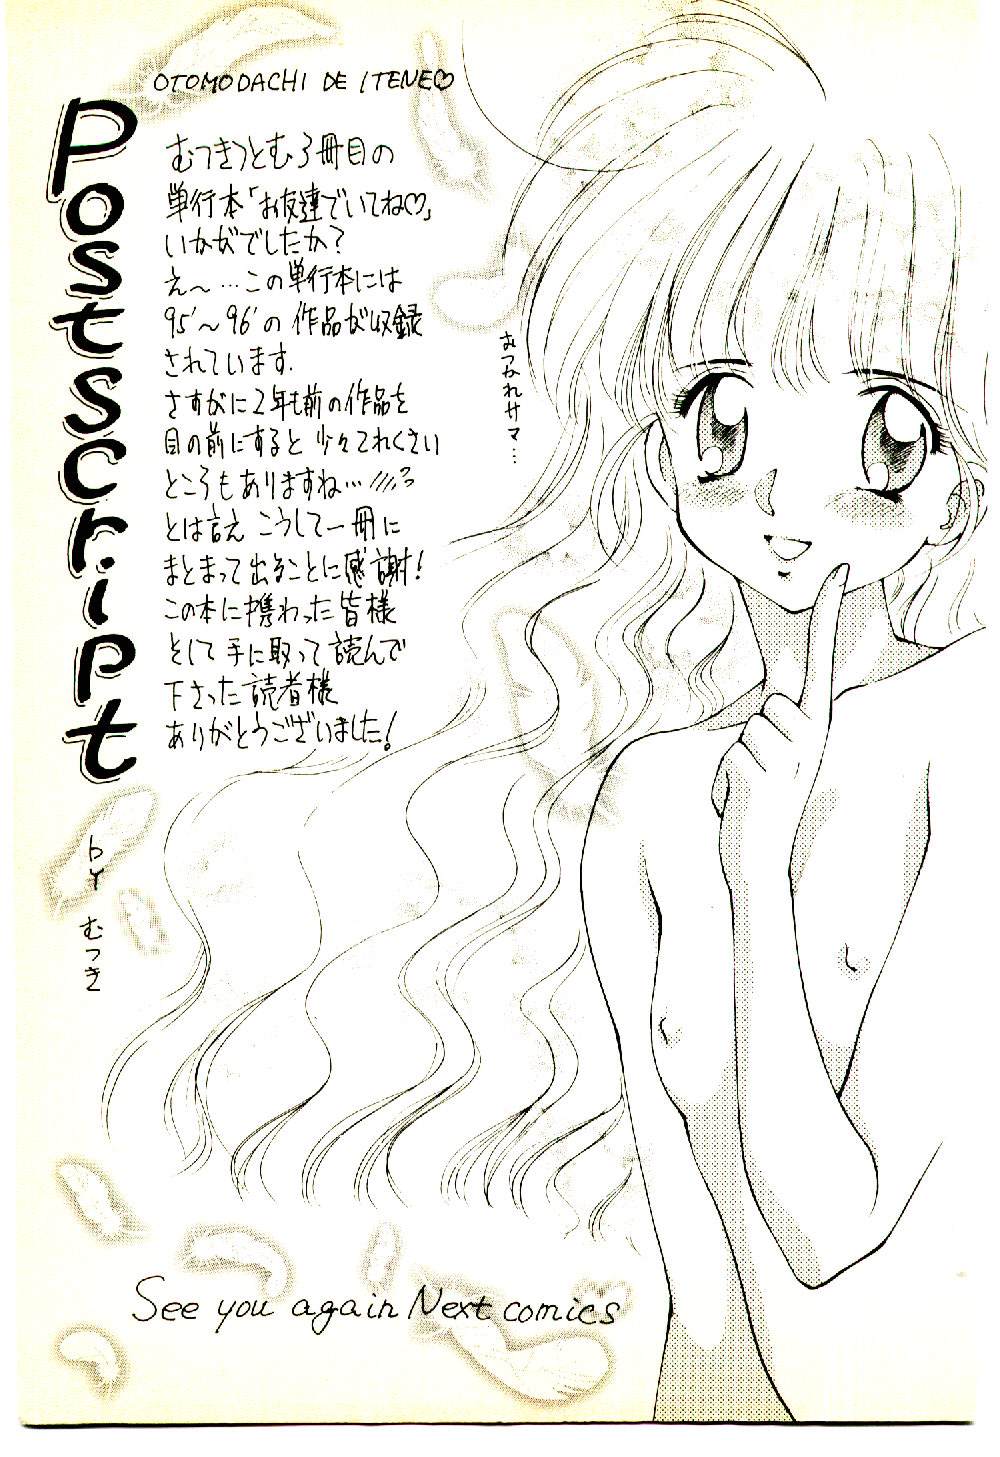 OTOMODACHI DE ITENE♡
Postscript
むつきつとむ3冊目の
単行本「お友達でいてね♡」
いかがでしたか?
え〜…この単行本には
95'〜96'の作品が収録
されています.
さすがに2年も前の作品を
目の前にすると少々てれくさい
ところもありますね…
とは言えこうして一冊に
まとまって出ることに感謝!
この本に携わった皆様
そして手に取って読んで
下さった読者様
ありがとうございました!
by むつき
おつかれサマ…
See you again Next comics